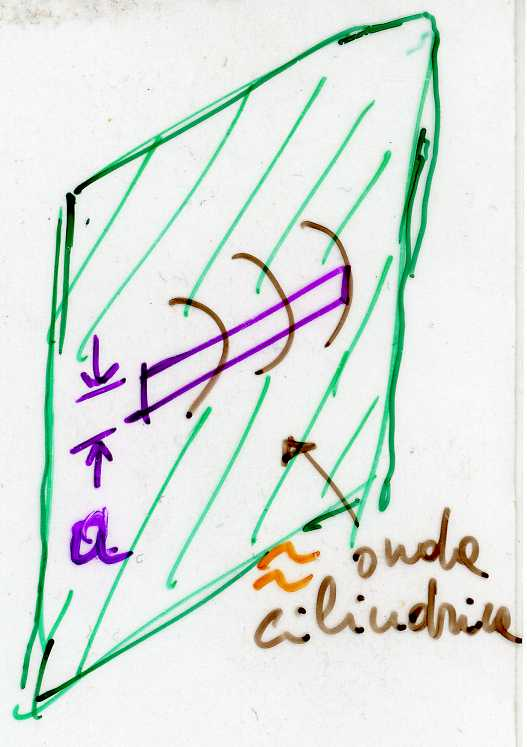 a
≈ onda
cilindrica